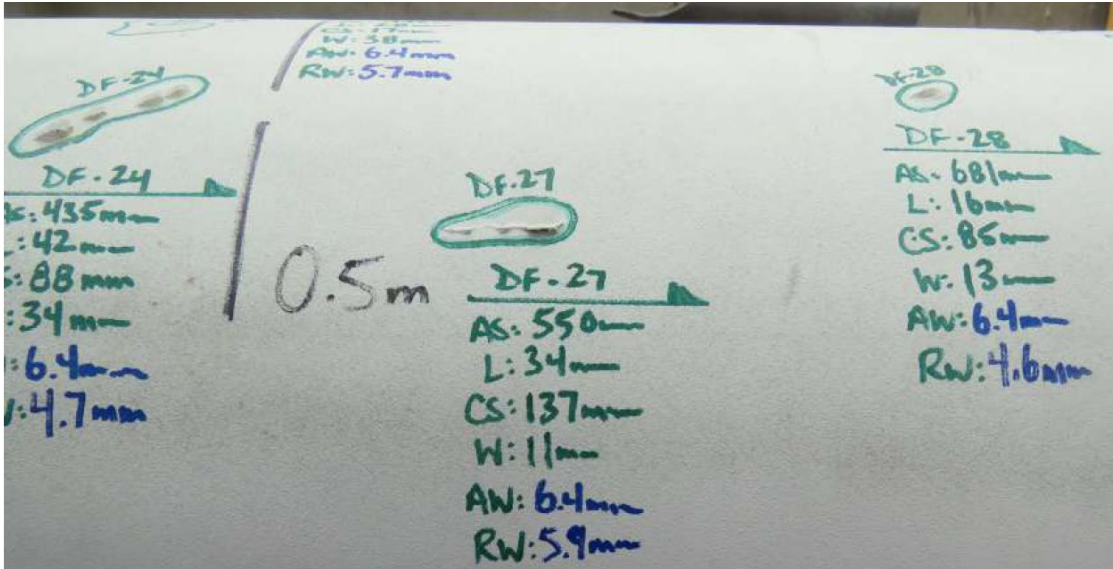 CS: 17mm
W: 38mm
AW: 6.4mm
RW: 5.7mm
DF-24
DF-24
AS: 435mm
L: 42mm
S: 88mm
: 34mm
: 6.4mm
: 4.7mm
0.5m
DF-27
DF-27
AS: 550mm
L: 34mm
CS: 137mm
W: 11mm
AW: 6.4mm
RW: 5.9mm
DF-28
DF-28
AS: 681mm
L: 16mm
CS: 85mm
W: 13mm
AW: 6.4mm
RW: 4.6mm